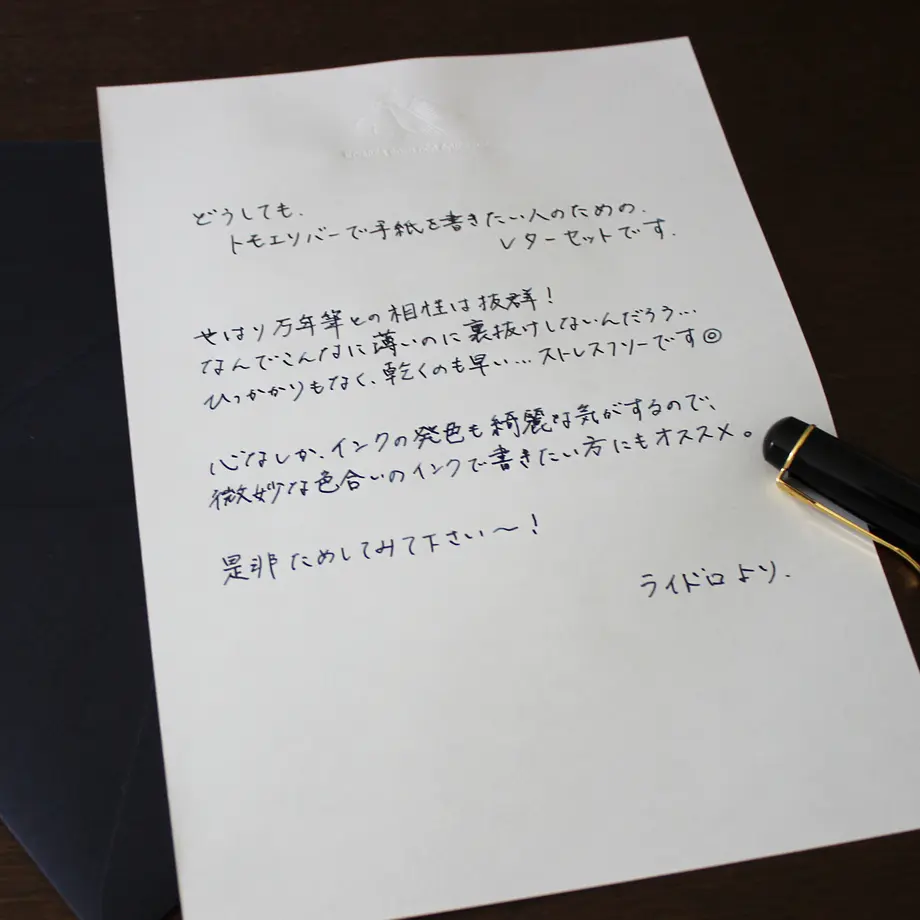 どうしても、
トモエリバーで手紙を書きたい人のための、
レターセットです.
やはり万年筆との相性は抜群!
なんでこんなに薄いのに裏抜けしないんだろう…
ひっかかりもなく、乾くのも早い…ストレスフリーです◎
心なしか、インクの発色も綺麗な気がするので、
微妙な色合いのインクで書きたい方にもオススメ。
是非ためしてみて下さい〜!
ライドロより.